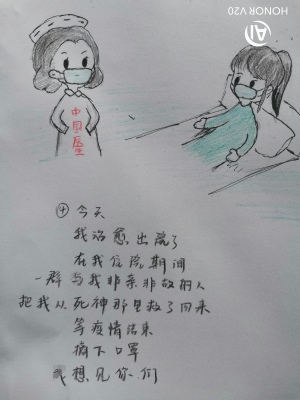 AI
HONOR V20
中国医生
④今天
我治愈出院了
在我住院期间
一群与我非亲非故的人
把我从死神那里救了回来
等疫情结束
摘下口罩
我想见你们